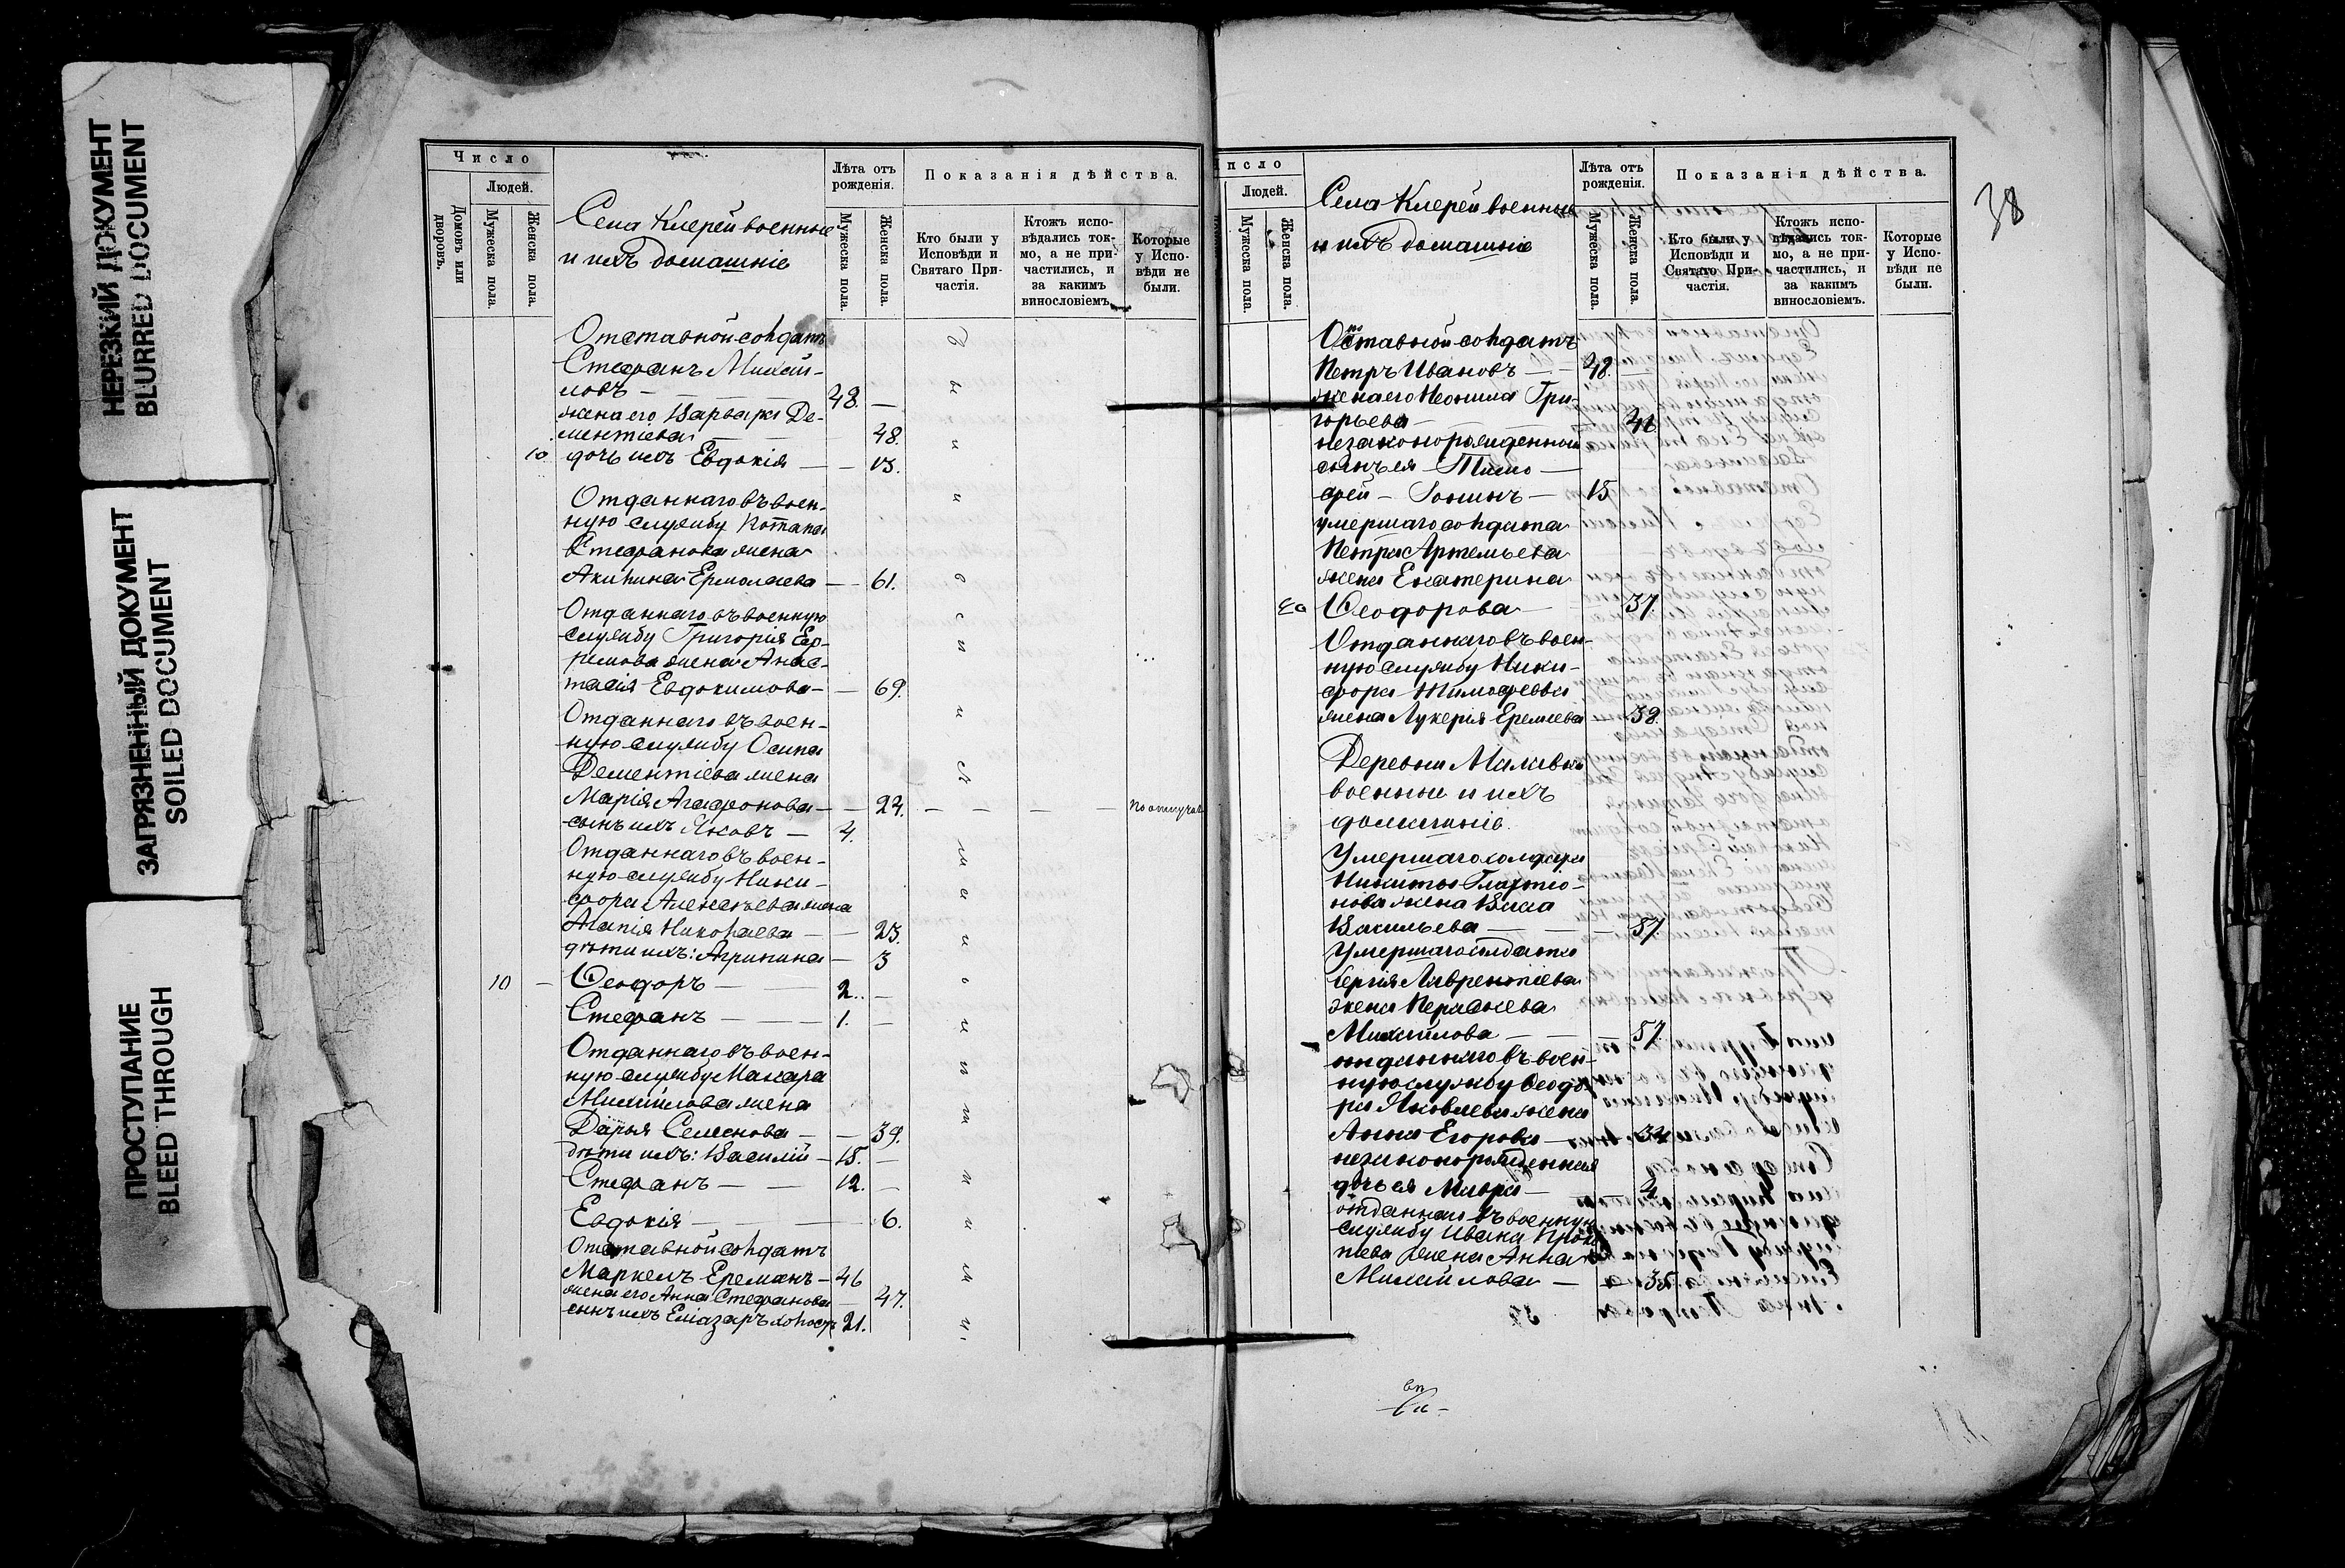 НЕРЕЗКИЙ ДОКУМЕНТ
BLURRED DOCUMENT
ЗАГРЯЗНЕННЫЙ ДОКУМЕНТ
SOILED DOCUMENT
ПРОСТУПАНИЕ
BLEED THROUGH
Число
Людей.
Домовъ или дворовъ.
Мужеска пола.
Женска пола.
Села Клерей военные
и ихъ домашніе
Лѣта отъ рожденія.
Мужеска пола.
Женска пола.
Показанія дѣйства.
Кто были у Исповѣди и Святаго Причастія.
Ктожъ исповѣдались токмо, а не причастились, и за какимъ винословіемъ.
Которые у Исповѣди не были.
Отставной солдатъ
Стефанъ Михай-
ловъ — 48. —
жена его Варвара Де-
ментіева 48.
10 дочь ихъ Евдокія — — 13.
Отданнаго въ воен-
ную службу
Стефанова жена
Акилина Ермолаева — — 61.
Отданнаго въ военную
службу Григорія Еф-
ремова жена Анас-
тасія Евдокимова — — 69.
Отданнаго въ воен-
ную службу Осипа
Дементіева жена
Марія Агафонова — — 24. — — — —
сынъ ихъ Яковъ — 4.
Отданнаго въ воен-
ную службу Ники-
фора Алексѣева жена
Агапія Николаева — — 23.
дѣти ихъ: Агрипина — 3
10 — Ѳеодоръ — 2. —
Стефанъ — — 1. —
Отданнаго въ воен-
ную службу Макара
Михайлова жена
Дарья Семенова — — 39.
дѣти ихъ: Василій — 15. —
Стефанъ — — 12. —
Евдокія — — 6.
Отставной солдатъ
Маркелъ — 46
жена его Анна Стефанова — 47.
сынъ ихъ Еліазаръ холостъ 21.
Число
Людей.
Мужеска пола.
Женска пола.
Села Клерей военные
и ихъ домашніе
Лѣта отъ рожденія.
Мужеска пола.
Женска пола.
Показанія дѣйства.
Кто были у Исповѣди и Святаго Причастія.
Ктожъ исповѣдались токмо, а не причастились, и за какимъ винословіемъ.
Которые у Исповѣди не были.
38
Отставной солдатъ
Петръ Ивановъ — 48.
жена его Неонила Гри-
горьева —
незаконорожденной
сынъ ея Тимо-
фей — 15
умершаго солдата
Петра Артемьева
жена Екатерина
Ѳеодорова — 37.
Отданнаго въ воен-
ную службу Ники-
фора Тимофеева
жена Лукерія Еремеева 38.
Деревни
военные и ихъ
домашніе.
Умершаго солдата
Никиты
жена Васса
Васильева — 57.
Умершаго солдата
Сергія Лаврентіева
жена
Михайлова — 57.
отданнаго въ воен-
ную службу Ѳеодо-
ра Яковлева жена
Анна Егорова —
незаконорожденная
дочь ея Мавра —
отданнаго въ военную
службу Ивана
жена Анна
Михайлова — 35.